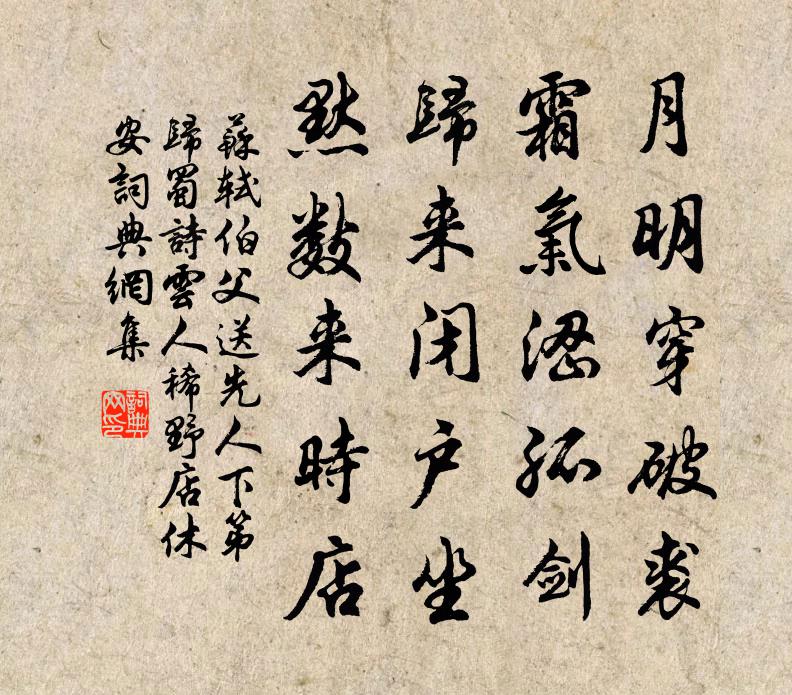 月明穿破裘
霜氣澀孤劍
歸来闭户坐
黙數来時店
蘇軾伯父送先人下第
歸蜀詩雲人稀野店休
安詞典網集
詞典網印